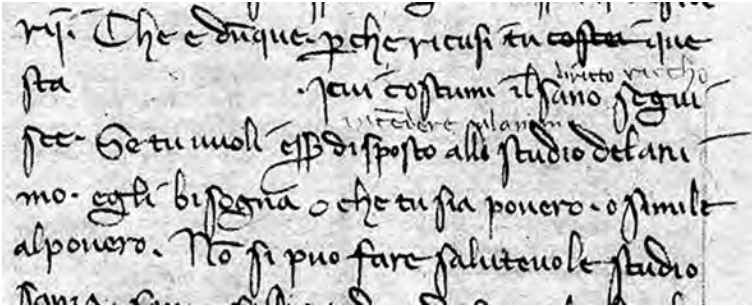 rij. Che e dūque. ꝑche ricusi tu costu ī que
diritto riccho
sta . Icui costumi il sano segui
intēdere alanima
sce. Se tu uuoli eſſ disposto allo studio delani
mo. egli bisogna o che tu sia pouero. o simile
alpouero. Nō si puo fare saluteuole studio